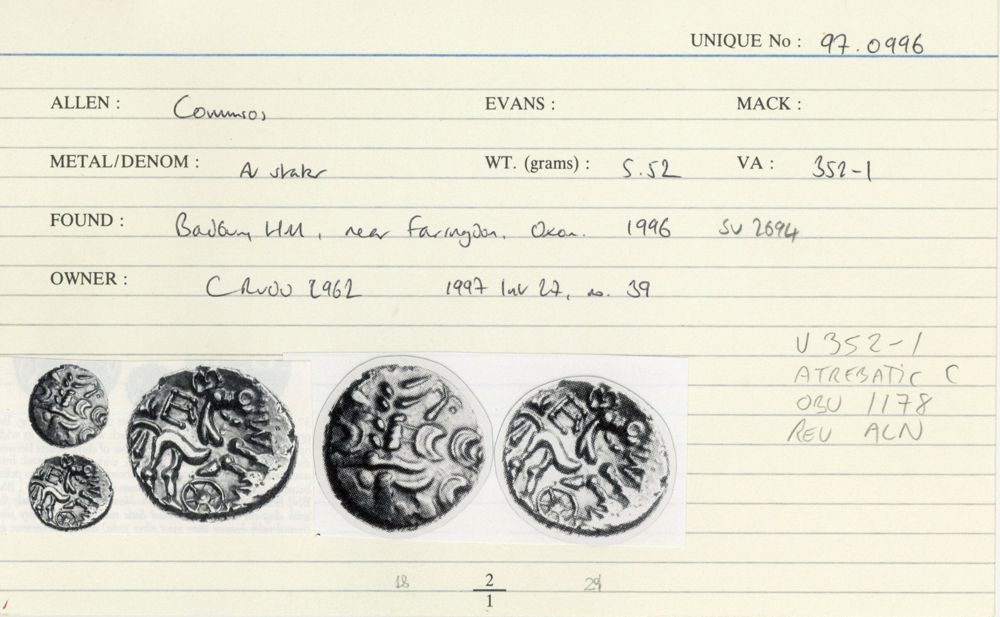 UNIQUE No : 97.0996
ALLEN : Commios EVANS : MACK :
METAL/DENOM : AV stater WT. (grams) : 5.52 VA : 352-1
FOUND : Badbury Hill, near Faringdon, Oxon. 1996 SU 2694
OWNER : CR 2962 1997 lot 27, no. 39
V 352-1
ATREBATIC C
OBV 1178
REV ACN
18 2 29
1